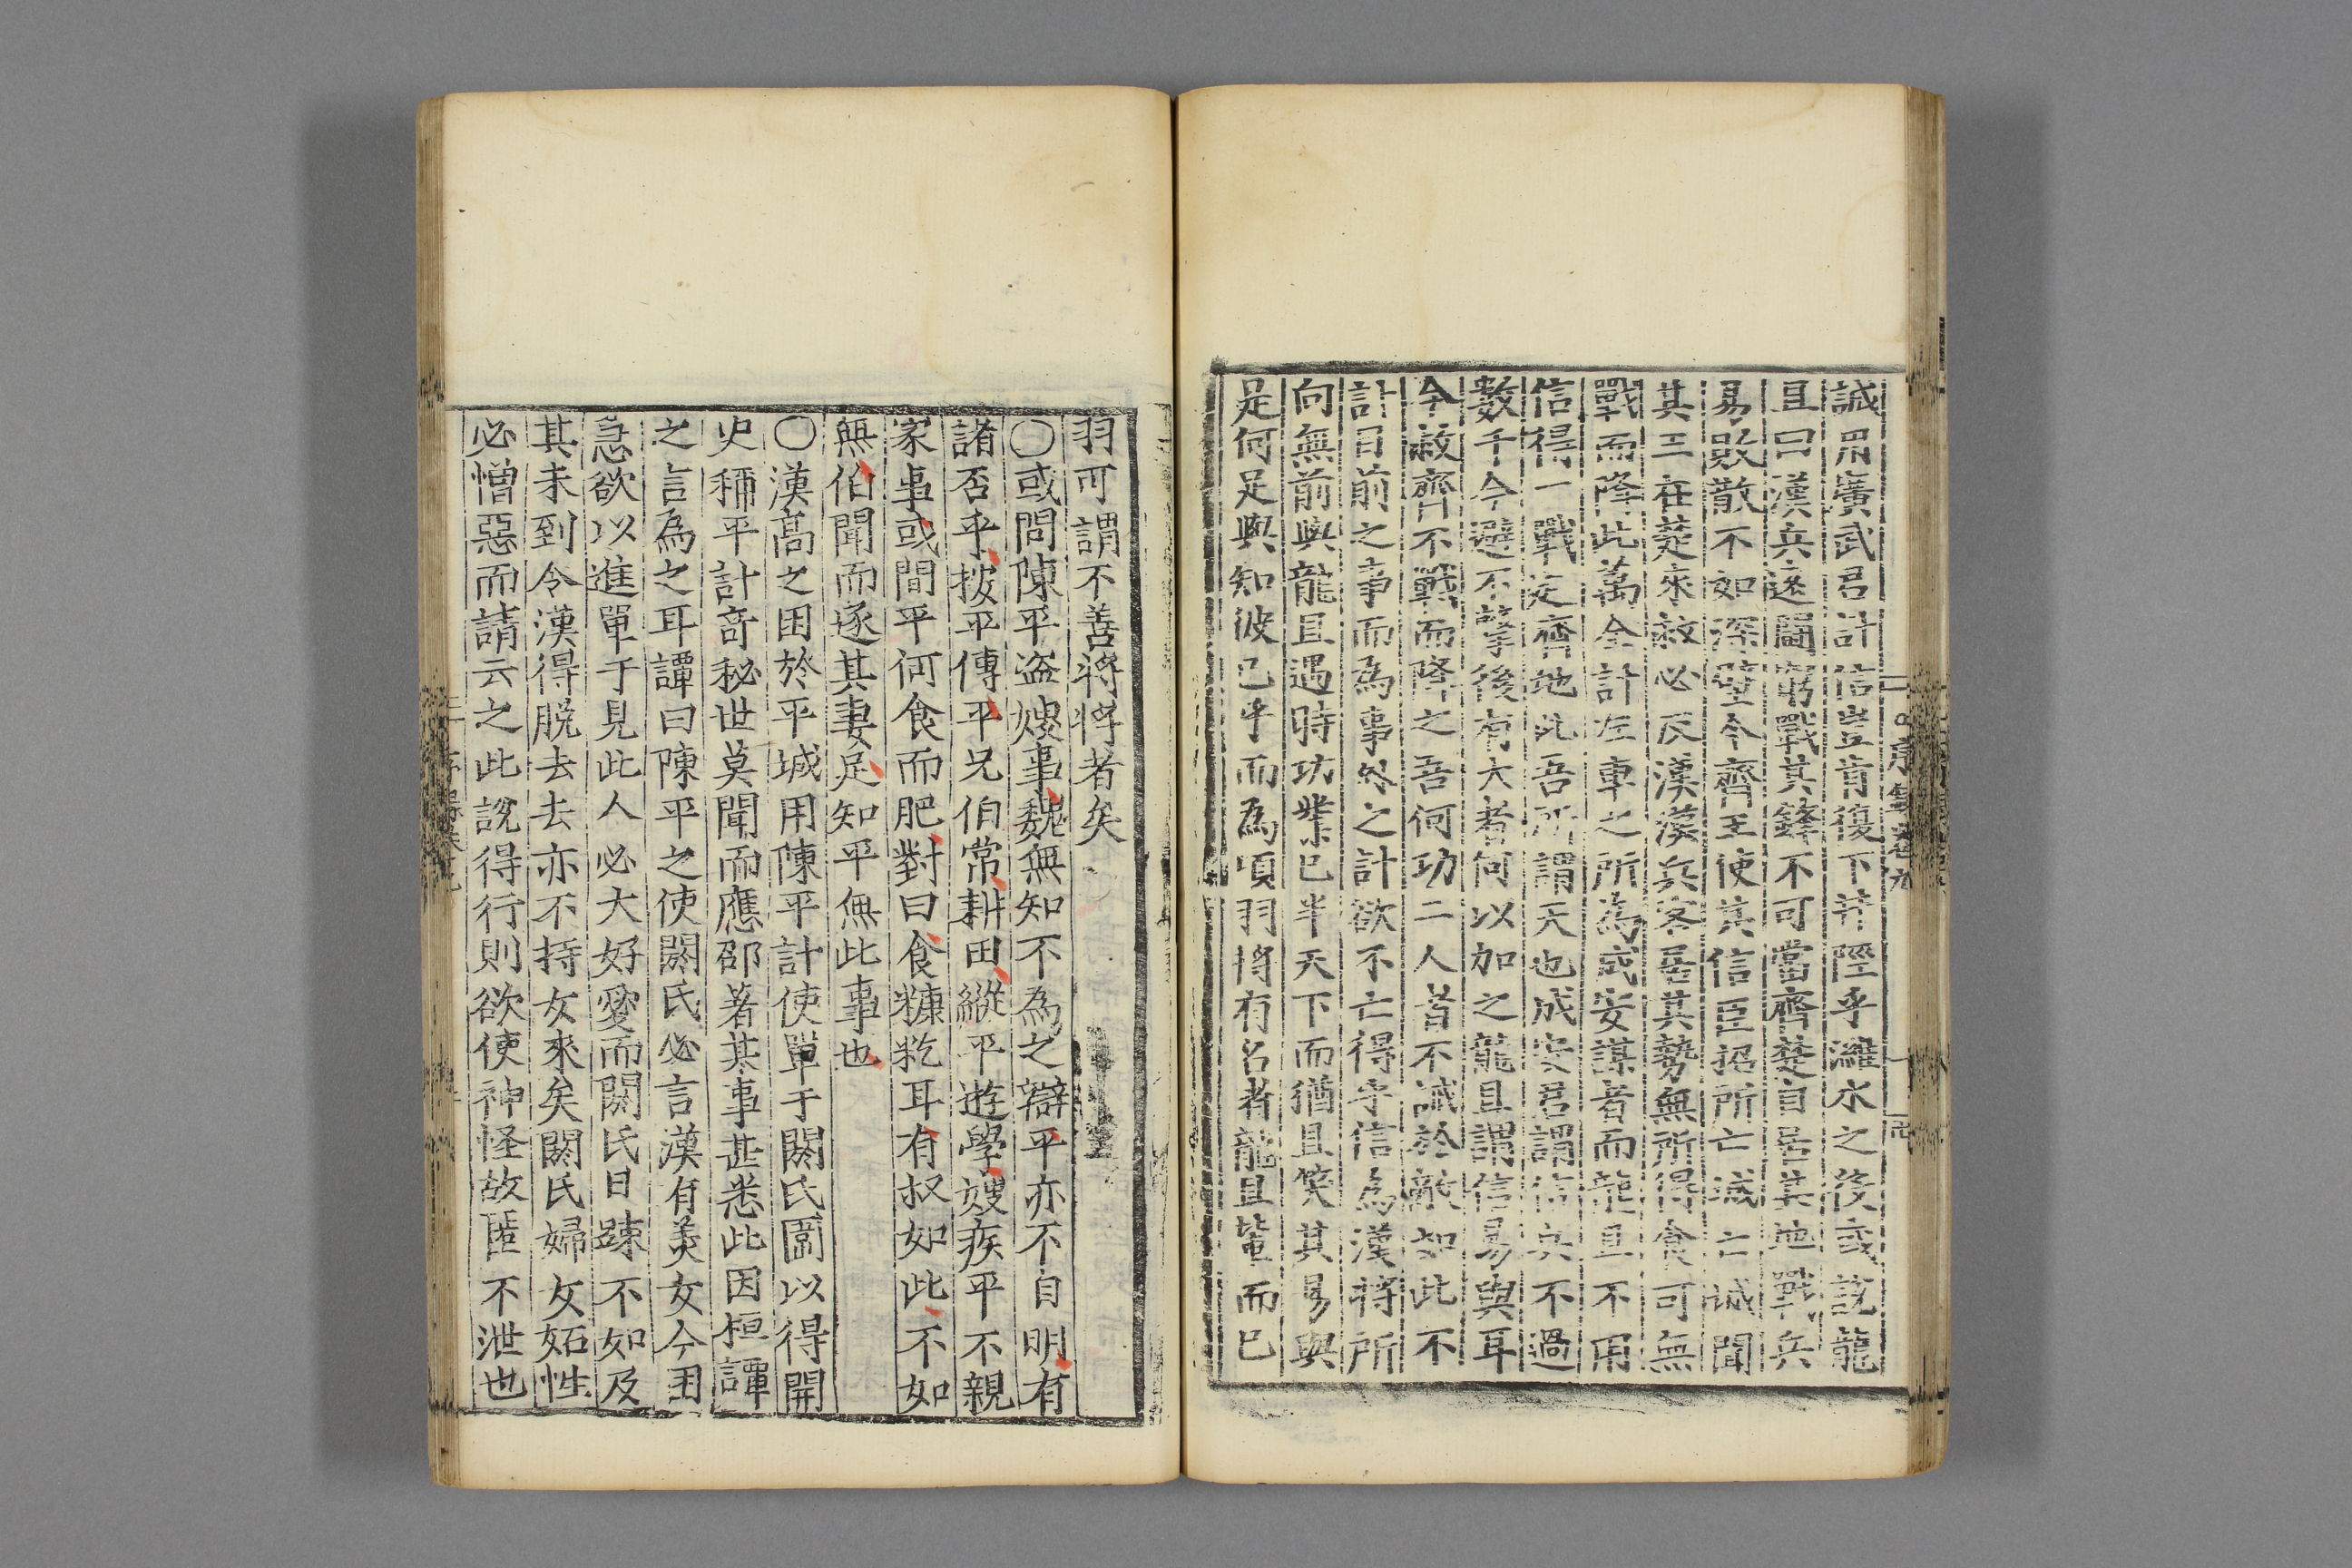 誠用廣武君計信豈肯復下井陘乎濰水之役或說龍
且曰漢兵遠鬬窮戰其鋒不可當齊楚自居其地戰兵
易敗散不如深壁令齊王使其信臣招所亡城亡城聞
其王在楚來救必反漢漢兵客居其勢無所得食可無
戰而降此萬全計左車之所為成安謀者而龍且不用
信得一戰定齊地此吾所謂天也成安君謂信兵不過
數千今避不擊後有大者何以加之龍且謂信易與耳
今救齊不戰而降之吾何功二人者不誠於敵如此不
計目前之事而為事外之計欲不亡得乎信為漢將所
向無前與龍且遇時功業已半天下而猶且笑其易與
是何足與知彼已乎而為項羽將有名者龍且輩而已
羽可謂不善將將者矣
〇或問陳平盗嫂事魏無知不為之辯平亦不自明有
諸否乎披平傳平兄伯常耕田縱平遊學嫂疾平不親
家事或間平何食而肥對曰食糠籺耳有叔如此不如
無伯聞而逐其妻足知平無此事也
〇漢高之困於平城用陳平計使單于閼氏圍以得開
史稱平計奇秘世莫聞而應邵著其事甚悉此因桓譚
之言為之耳譚曰陳平之使閼氏必言漢有美女今困
急欲以進單于見此人必大好愛而閼氏日踈不如及
其未到令漢得脱去去亦不持女來矣閼氏婦女妬性
必憎惡而請云之此說得行則欲使神怪故匿不泄也